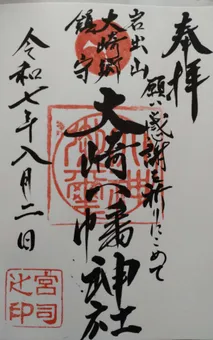 奉拝
願い感謝を祈りにこめて
岩出山
大崎郷
鎮守
大崎八幡神社
令和七年八月二日
宮司之印